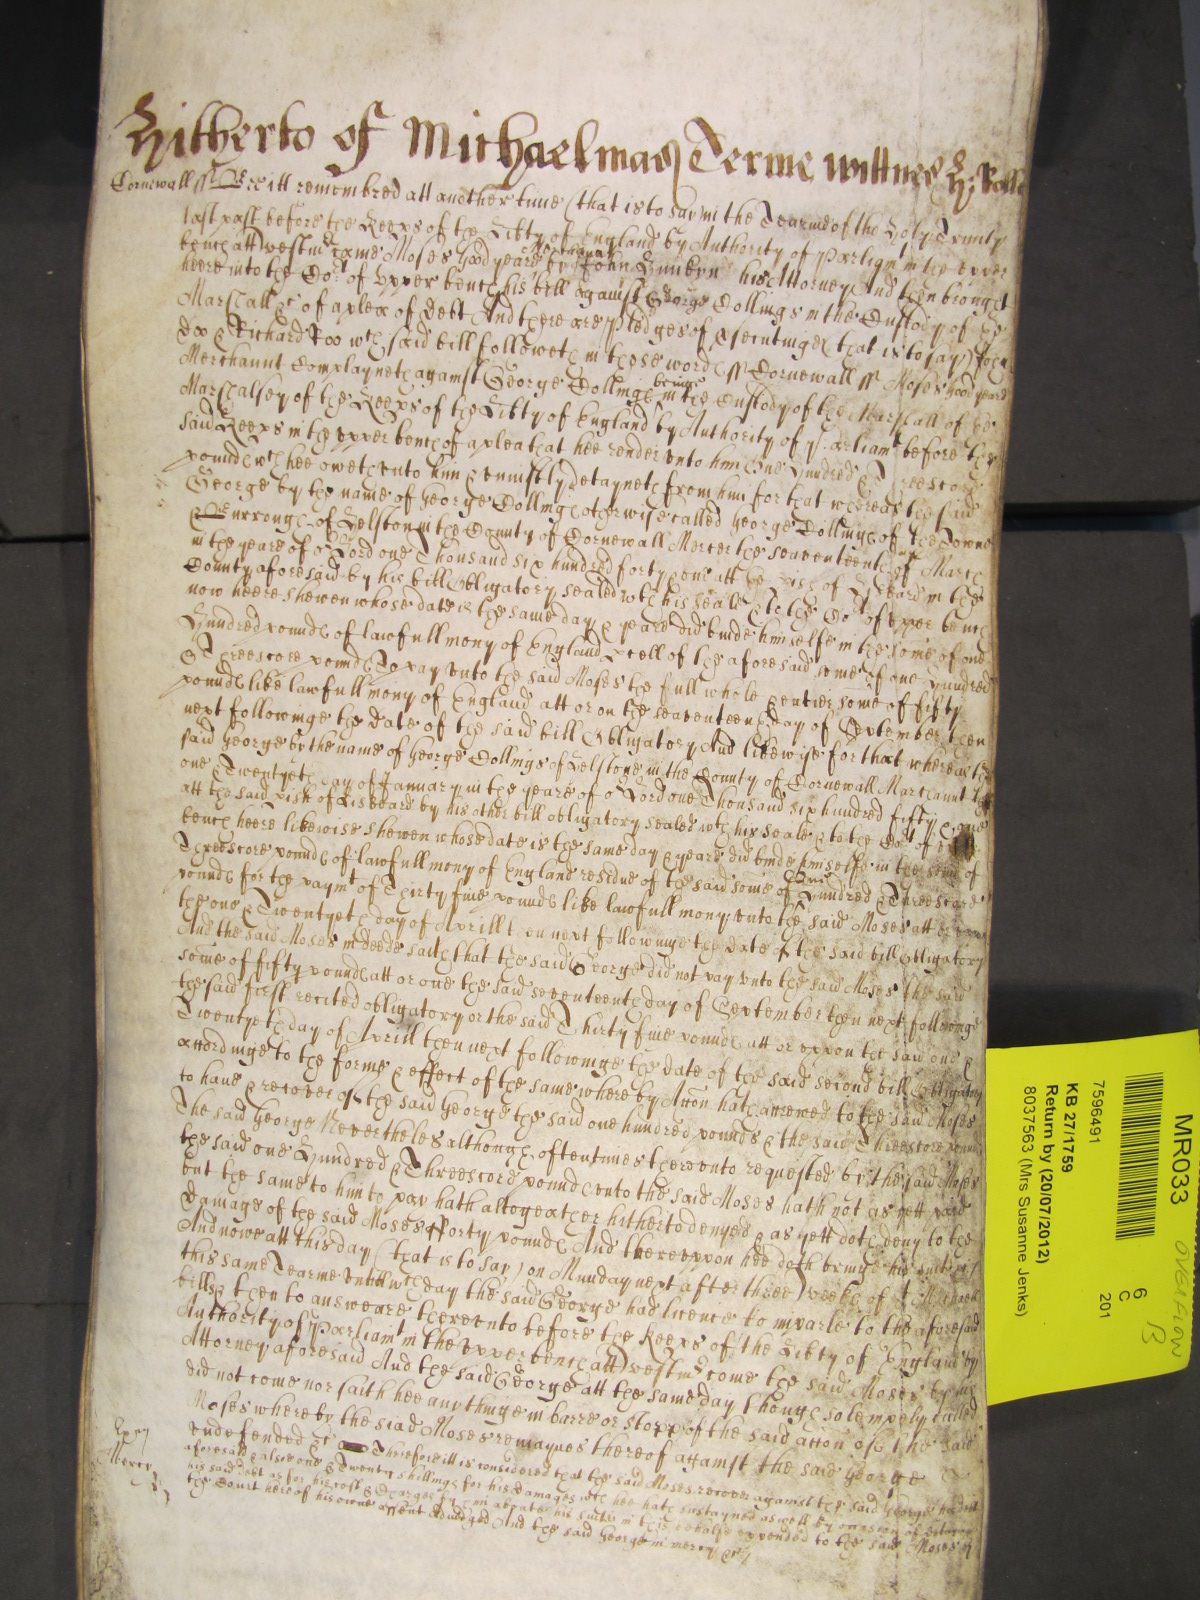 Hitherto of Michaelmas Terme wittnes H: Rolle
Cornewall ss Bee itt remembred att another time (that is to say in the Tearme of the Holy Trinity
last past before the Keeps of the Libty of England by Authority of Parliamt in the upper
bench att Westmr came Moses Goodyeare by John Hunkyn his Attorney And then brought
heere into the Cort of upper bench his bill against George Collings in the Custody of the
Marshall &c of a plea of debt And there are pledges of prsecutinge (that is to say) John
Doo & Richard Roo wch said bill followeth in these words ss Cornewall ss Moses Goodyeare
Merchannt Complayneth against George Collings beinge in the Custody of the Marshall of the
Marshalsey of the Keeps of the Libty of England by Authority of Parliamt before the
said Keeps in the upper bench of a plea that hee render unto him One Hundred & Threescore
pounds wch hee oweth unto him & uniustly detayneth from him for that whereas the said
George by the name of George Collings otherwise called George Collings of the Towne
& Burrough of Helston in the County of Cornewall Mercer the seaventeenth day of March
in the yeare of or Lord one Thousand six hundred forty & one att the pish of Liskeard in the
County aforesaid by his bill Obligatory sealed wth his seale & to the Cort of upper bench
now heere shewen whose date is the same day & yeare did binde himselfe in the some of one
Hundred pounds of lawfull mony of England prcell of the aforesaid some of one Hundred
& Threescore pounds To pay unto the said Moses the full whole & entier some of fifty
pounds like lawfull mony of England att or on the seaventeenth day of September then
next followinge the date of the said bill Obligatory And likewise for that whereas the
said George by the name of George Collings of Helstone in the County of Cornewall Marchannt the
one & Twentyeth day of January in the yeare of or Lord one Thousand six hundred fifty & one
att the said pish of Liskeard by his other bill obligatory sealed wth his seale & to the Cort of upper
bench heere likewise shewen whose date is the same day & yeare did binde himselfe in the some of
Threescore pounds of lawfull mony of England residue of the said some of One Hundred & Threescore
pounds for the paymt of Thirty five pounds like lawfull mony unto the said Moses att or uppon
the one & Twentyeth day of Aprill then next followinge the date of the said bill Obligatory
And the said Moses in deede saith that the said George did not pay unto the said Moses the said
some of fifty pounds att or one the said seventeenth day of September then next followinge
the said first recited obligatory or the said Thirty five pounds att or uppon the said one &
Twentyeth day of Aprill then next followinge the date of the said second bill Obligatory
accordinge to the forme & effect of the same where by Accon hath accrewed to the said Moses
to have & recover of the said George the said one hundred pounds & the said Threescore pounds
The said George Neverthelesse although oftentimes thereunto requested by the said Moses
the said one Hundred & Threescore pounds unto the said Moses hath not as yett paid
but the same to him to pay hath altogeather hitherto denyed & as yett doth deny to the
damage of the said Moses fforty pounds And thereuppon hee doth bringe his suite &c
And nowe att this day (that is to say) on Munday next after three weeks of St Michael
this same Tearme untill wch day the said George had licence to imparle to the aforesaid
bill & then to answeare thereunto before the Keeps of the Libty of England by
Authority of Parliamt in the upper bench att Westmr come the said Moses by his
Attorney aforesaid And the said George att the same day though solempnly called
did not come nor saith hee any thinge in barre or stopp of the said accon of the said
Moses where by the siad Moses remaynes thereof against the said George
undefended &c Therefore itt is considered that the said Moses recover against the said George his debt
aforesaid & alsoe one & Twenty shillings for his damages wch hee hath sustayned as well by occasion of detayninge
his said debt as for his costs & Charges by him about his suite in this behalfe expended to the said Moses by
the Court hereof his owne assent Adiudged And the said George in mercy &c
Mercy
MR033
7596491
KB 27/1759
Return by (20/07/2012)
8037563 (Mrs Susanne Jenks)
6
C
201
OVERFLOW
B